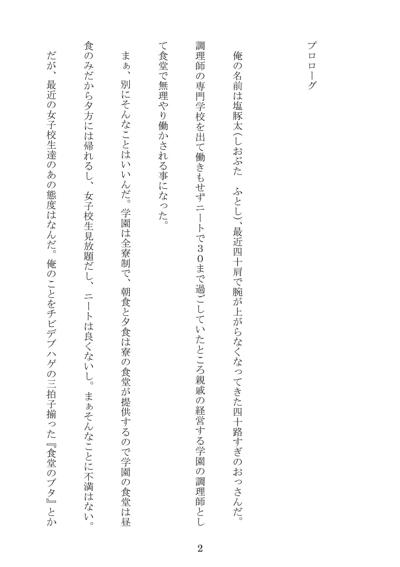 プロローグ
俺の名前は塩豚太（しおぶた　ふとし）、最近四十肩で腕が上がらなくなってきた四十路すぎのおっさんだ。
調理師の専門学校を出て働きもせずニートで３０まで過ごしていたところ親戚の経営する学園の調理師とし
て食堂で無理やり働かされる事になった。
まぁ、別にそんなことはいいんだ。学園は全寮制で、朝食と夕食は寮の食堂が提供するので学園の食堂は昼
食のみだから夕方には帰れるし、女子校生見放題だし、ニートは良くないし。まぁそんなことに不満はない。
だが、最近の女子校生達のあの態度はなんだ。俺のことをチビデブハゲの三拍子揃った『食堂のブタ』とか
2